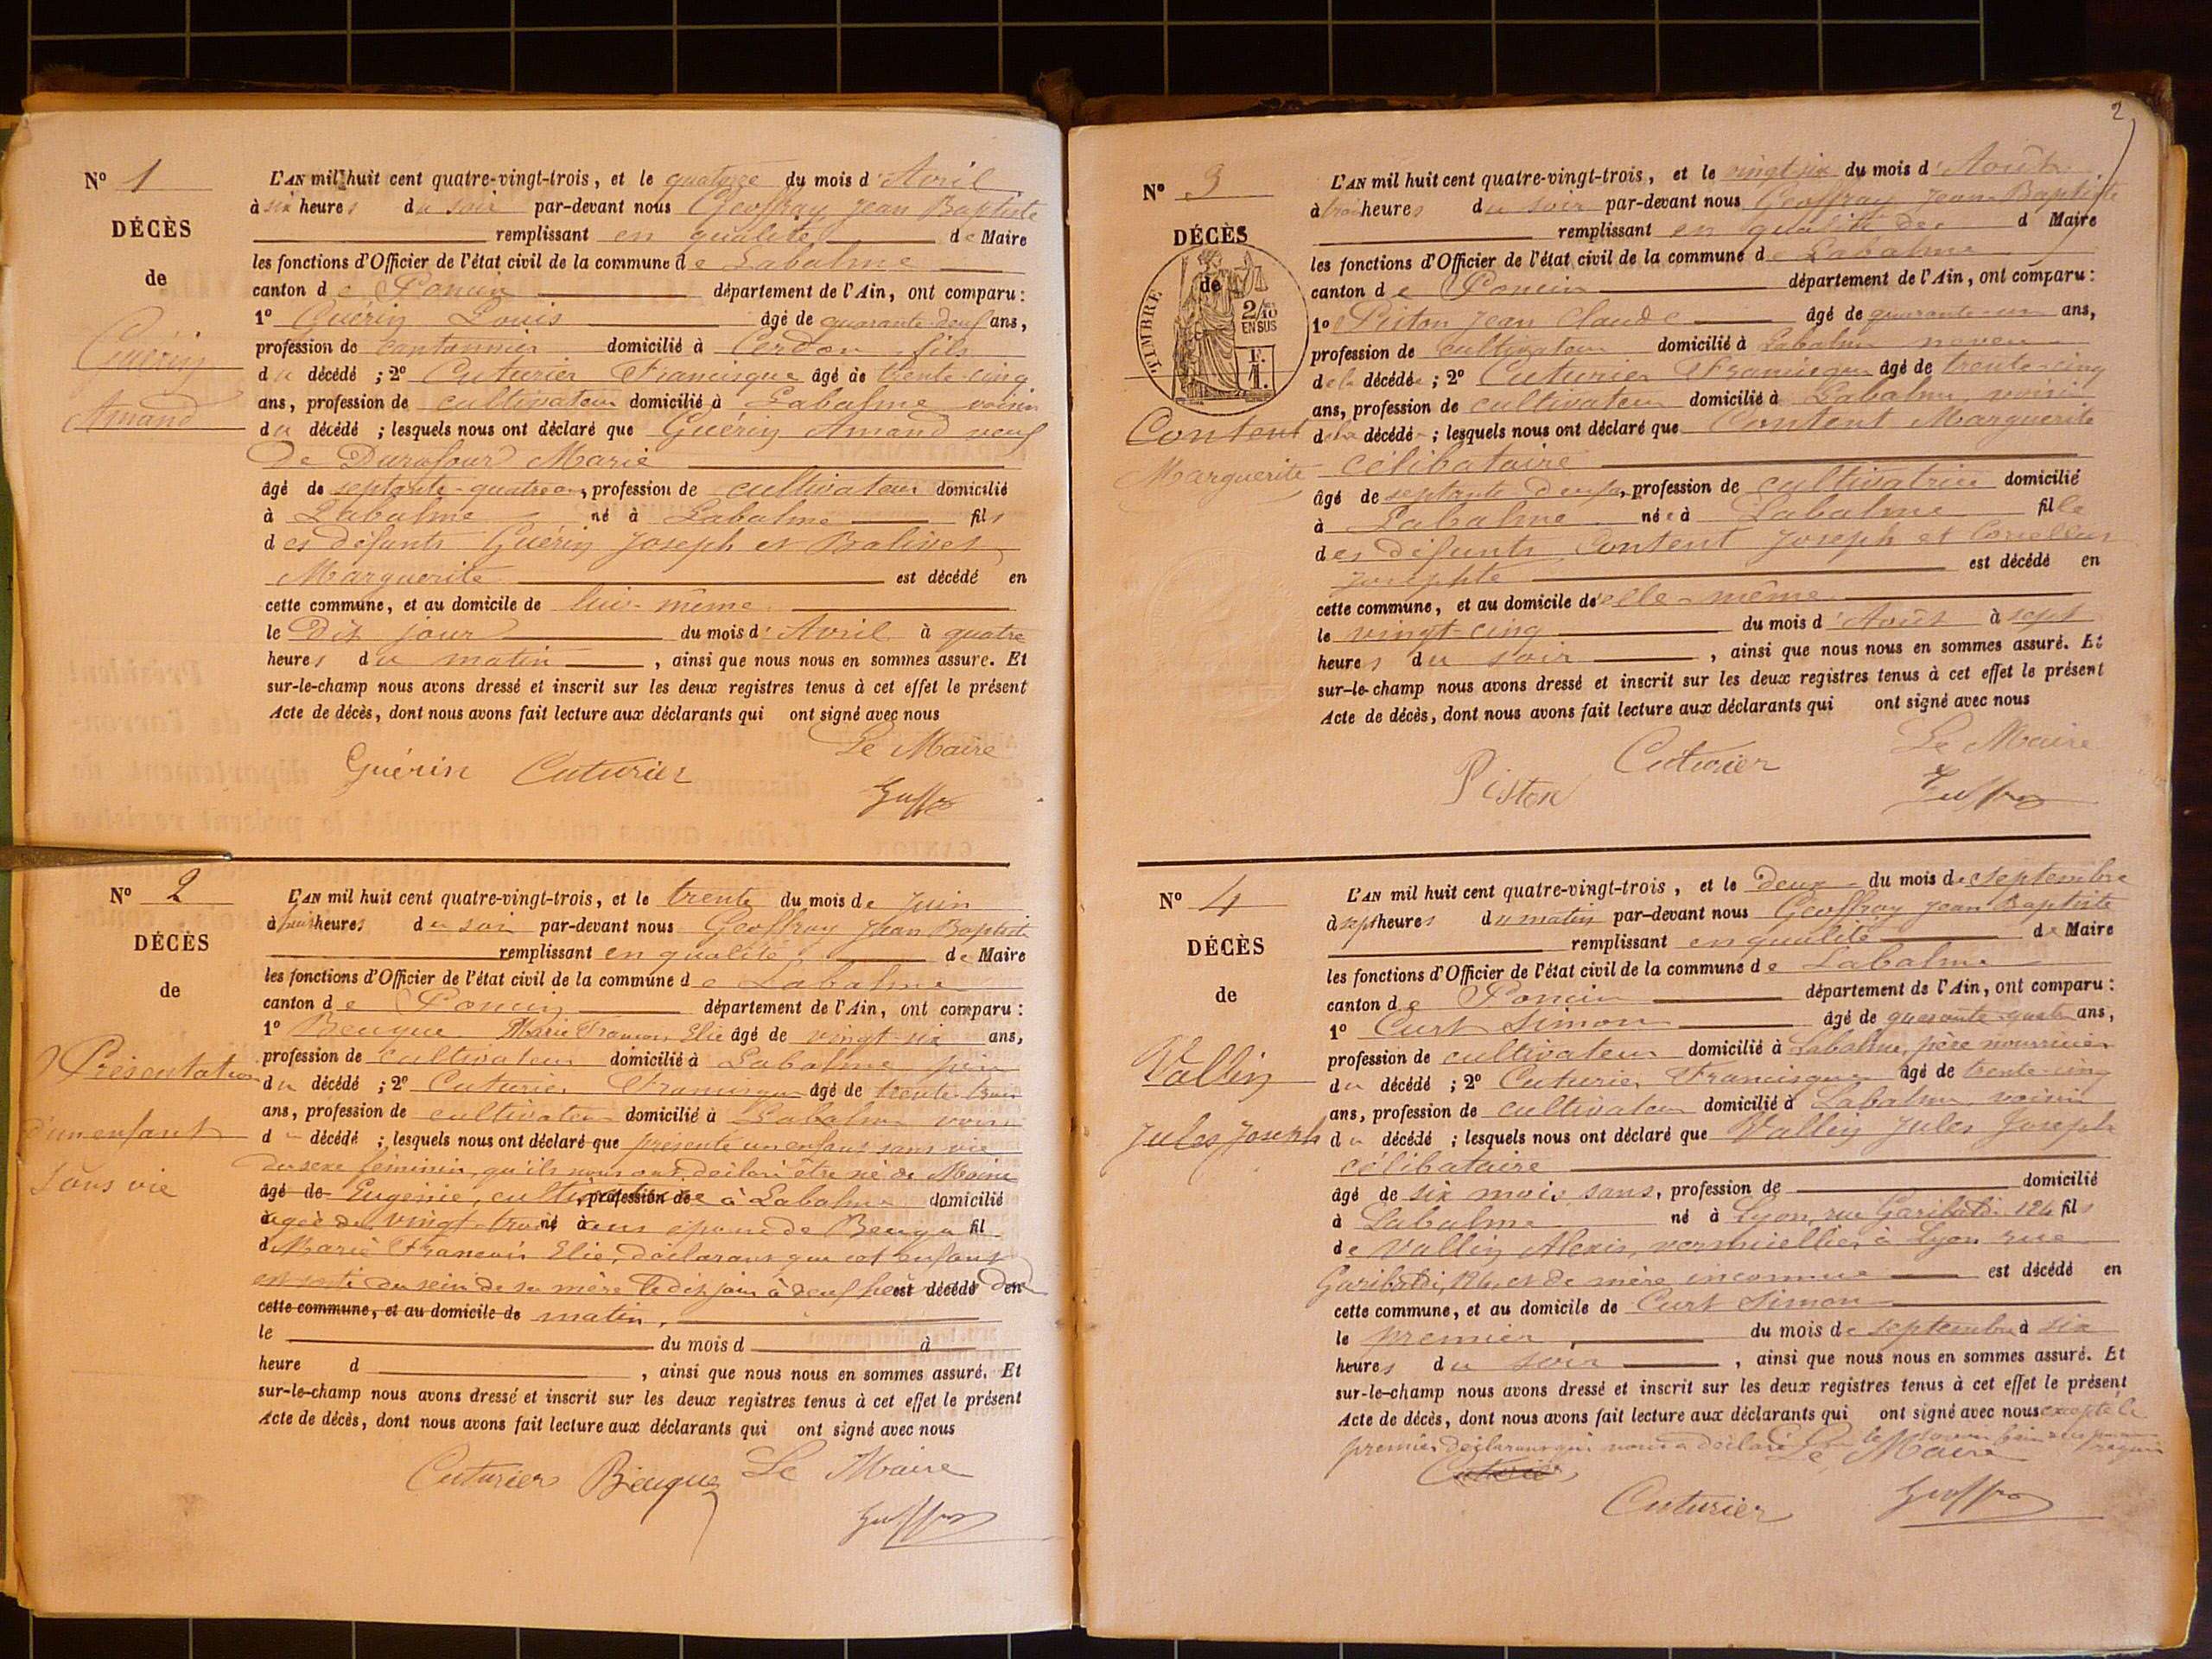 N° 1
DÉCÈS
de
Guérin
Amand
L'AN mil huit cent quatre-vingt-trois, et le quatorze du mois d'Avril
à six heures du soir par-devant nous Geoffray Jean Baptiste
remplissant en qualité de Maire
les fonctions d'Officier de l'état civil de la commune de Labalme
canton de Poncin département de l'Ain, ont comparu :
1° Guérin Louis âgé de quarante-deux ans,
profession de cantonnier domicilié à Cerdon fils
du décédé ; 2° Cuturier Francisque âgé de trente-cinq
ans, profession de cultivateur domicilié à Labalme voisin
du décédé ; lesquels nous ont déclaré que Guérin Amand veuf
de Durafour Marie
âgé de septante-quatre ans, profession de cultivateur domicilié
à Labalme né à Labalme fils
des défunts Guérin Joseph et Balivet
Marguerite est décédé en
cette commune, et au domicile de lui-même
le dix jour du mois d'Avril à quatre
heures du matin, ainsi que nous nous en sommes assuré. Et
sur-le-champ nous avons dressé et inscrit sur les deux registres tenus à cet effet le présent
Acte de décès, dont nous avons fait lecture aux déclarants qui ont signé avec nous
Le Maire
Guérin Cuturier
N° 2
DÉCÈS
de
Présentation
d'un enfant
sans vie
L'AN mil huit cent quatre-vingt-trois, et le trente du mois de Juin
à heures du soir par-devant nous Geoffray Jean Baptiste
remplissant en qualité de Maire
les fonctions d'Officier de l'état civil de la commune de Labalme
canton de Poncin département de l'Ain, ont comparu :
1° Beugue Marie François Elie âgé de vingt-six ans,
profession de cultivateur domicilié à Labalme père
du décédé ; 2° Cuturier Francisque âgé de trente
ans, profession de cultivateur domicilié à Labalme voisin
d décédé ; lesquels nous ont déclaré que présenté un enfant sans vie
du sexe féminin, qu'ils nous ont déclaré être né de
âgé de Eugénie, cultivatrice profession de à Labalme domicilié
âgée de vingt-trois né à ans épouse de Beugue fil
d Marie François Elie, déclarant que cet enfant
est sorti du sein de sa mère le dix juin à est décédé en
cette commune, et au domicile de matin,
le du mois d à
heure d , ainsi que nous nous en sommes assuré. Et
sur-le-champ nous avons dressé et inscrit sur les deux registres tenus à cet effet le présent
Acte de décès, dont nous avons fait lecture aux déclarants qui ont signé avec nous
Cuturier Beugue Le Maire
2
N° 3
DÉCÈS
de
TIMBRE
2/10
EN SUS
F.
1.
Content
Marguerite
L'AN mil huit cent quatre-vingt-trois, et le vingt-six du mois d'Août
à trois heures du soir par-devant nous Geoffray Jean Baptiste
remplissant en qualité de d Maire
les fonctions d'Officier de l'état civil de la commune de Labalme
canton de Poncin département de l'Ain, ont comparu :
1° Piston Jean Claude âgé de quarante-un ans,
profession de cultivateur domicilié à Labalme neveu
de la décédée ; 2° Cuturier Francisque âgé de trente-cinq
ans, profession de cultivateur domicilié à Labalme voisin
de la décédé ; lesquels nous ont déclaré que Content Marguerite
célibataire
âgé de septante-deux, profession de cultivatrice domicilié
à Labalme née à Labalme fille
des défunts Content Joseph et
Josephte est décédé en
cette commune, et au domicile de elle-même
le vingt-cinq du mois d'Août à sept
heures du soir, ainsi que nous nous en sommes assuré. Et
sur-le-champ nous avons dressé et inscrit sur les deux registres tenus à cet effet le présent
Acte de décès, dont nous avons fait lecture aux déclarants qui ont signé avec nous
Le Maire
Piston Cuturier
N° 4
DÉCÈS
de
Vallin
Jules Joseph
L'AN mil huit cent quatre-vingt-trois, et le deux du mois de septembre
à sept heures du matin par-devant nous Geoffray Jean Baptiste
remplissant en qualité de Maire
les fonctions d'Officier de l'état civil de la commune de Labalme
canton de Poncin département de l'Ain, ont comparu :
1° Curt Simon âgé de quarante-quatre ans,
profession de cultivateur domicilié à Labalme, père nourricier
du décédé ; 2° Cuturier Francisque âgé de trente-cinq
ans, profession de cultivateur domicilié à Labalme voisin
du décédé ; lesquels nous ont déclaré que Vallin Jules Joseph
célibataire
âgé de six mois sans, profession de domicilié
à Labalme né à Lyon, rue Garibaldi 124 fils
de Vallin Alexis, vermicellier à Lyon rue
Garibaldi, 124, et de mère inconnue est décédé en
cette commune, et au domicile de Curt Simon
le premier du mois de septembre à six
heures du soir, ainsi que nous nous en sommes assuré. Et
sur-le-champ nous avons dressé et inscrit sur les deux registres tenus à cet effet le présent
Acte de décès, dont nous avons fait lecture aux déclarants qui ont signé avec nous excepté le
premier déclarant qui nous a déclaré ne le savoir
Le Maire
Cuturier
Cuturier